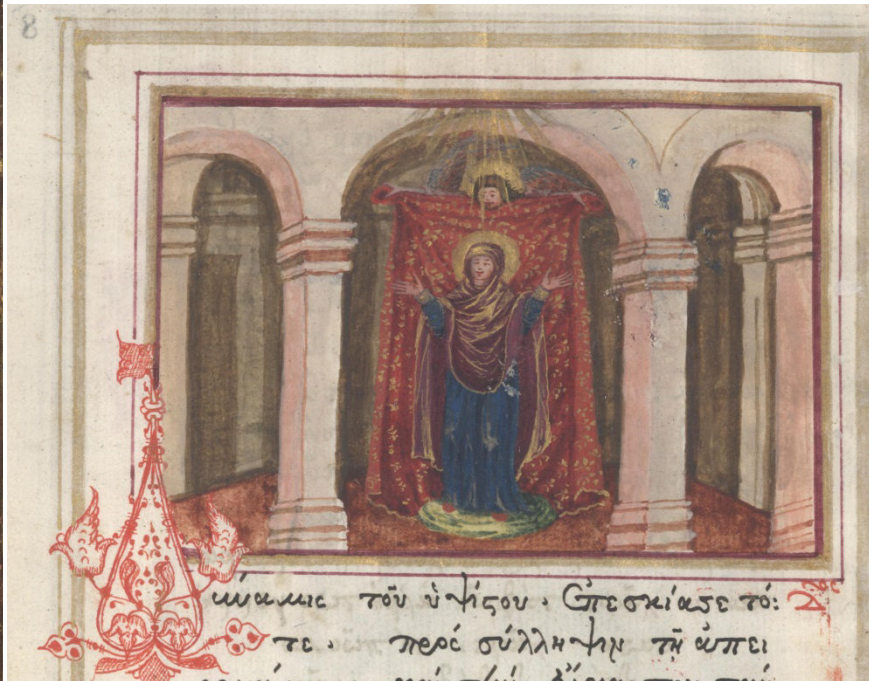 8
Δύναμις τοῦ ὑψίστου · Ἐπεσκίασε τό:
τε · πρὸς σύλληψιν τῇ ἀπει